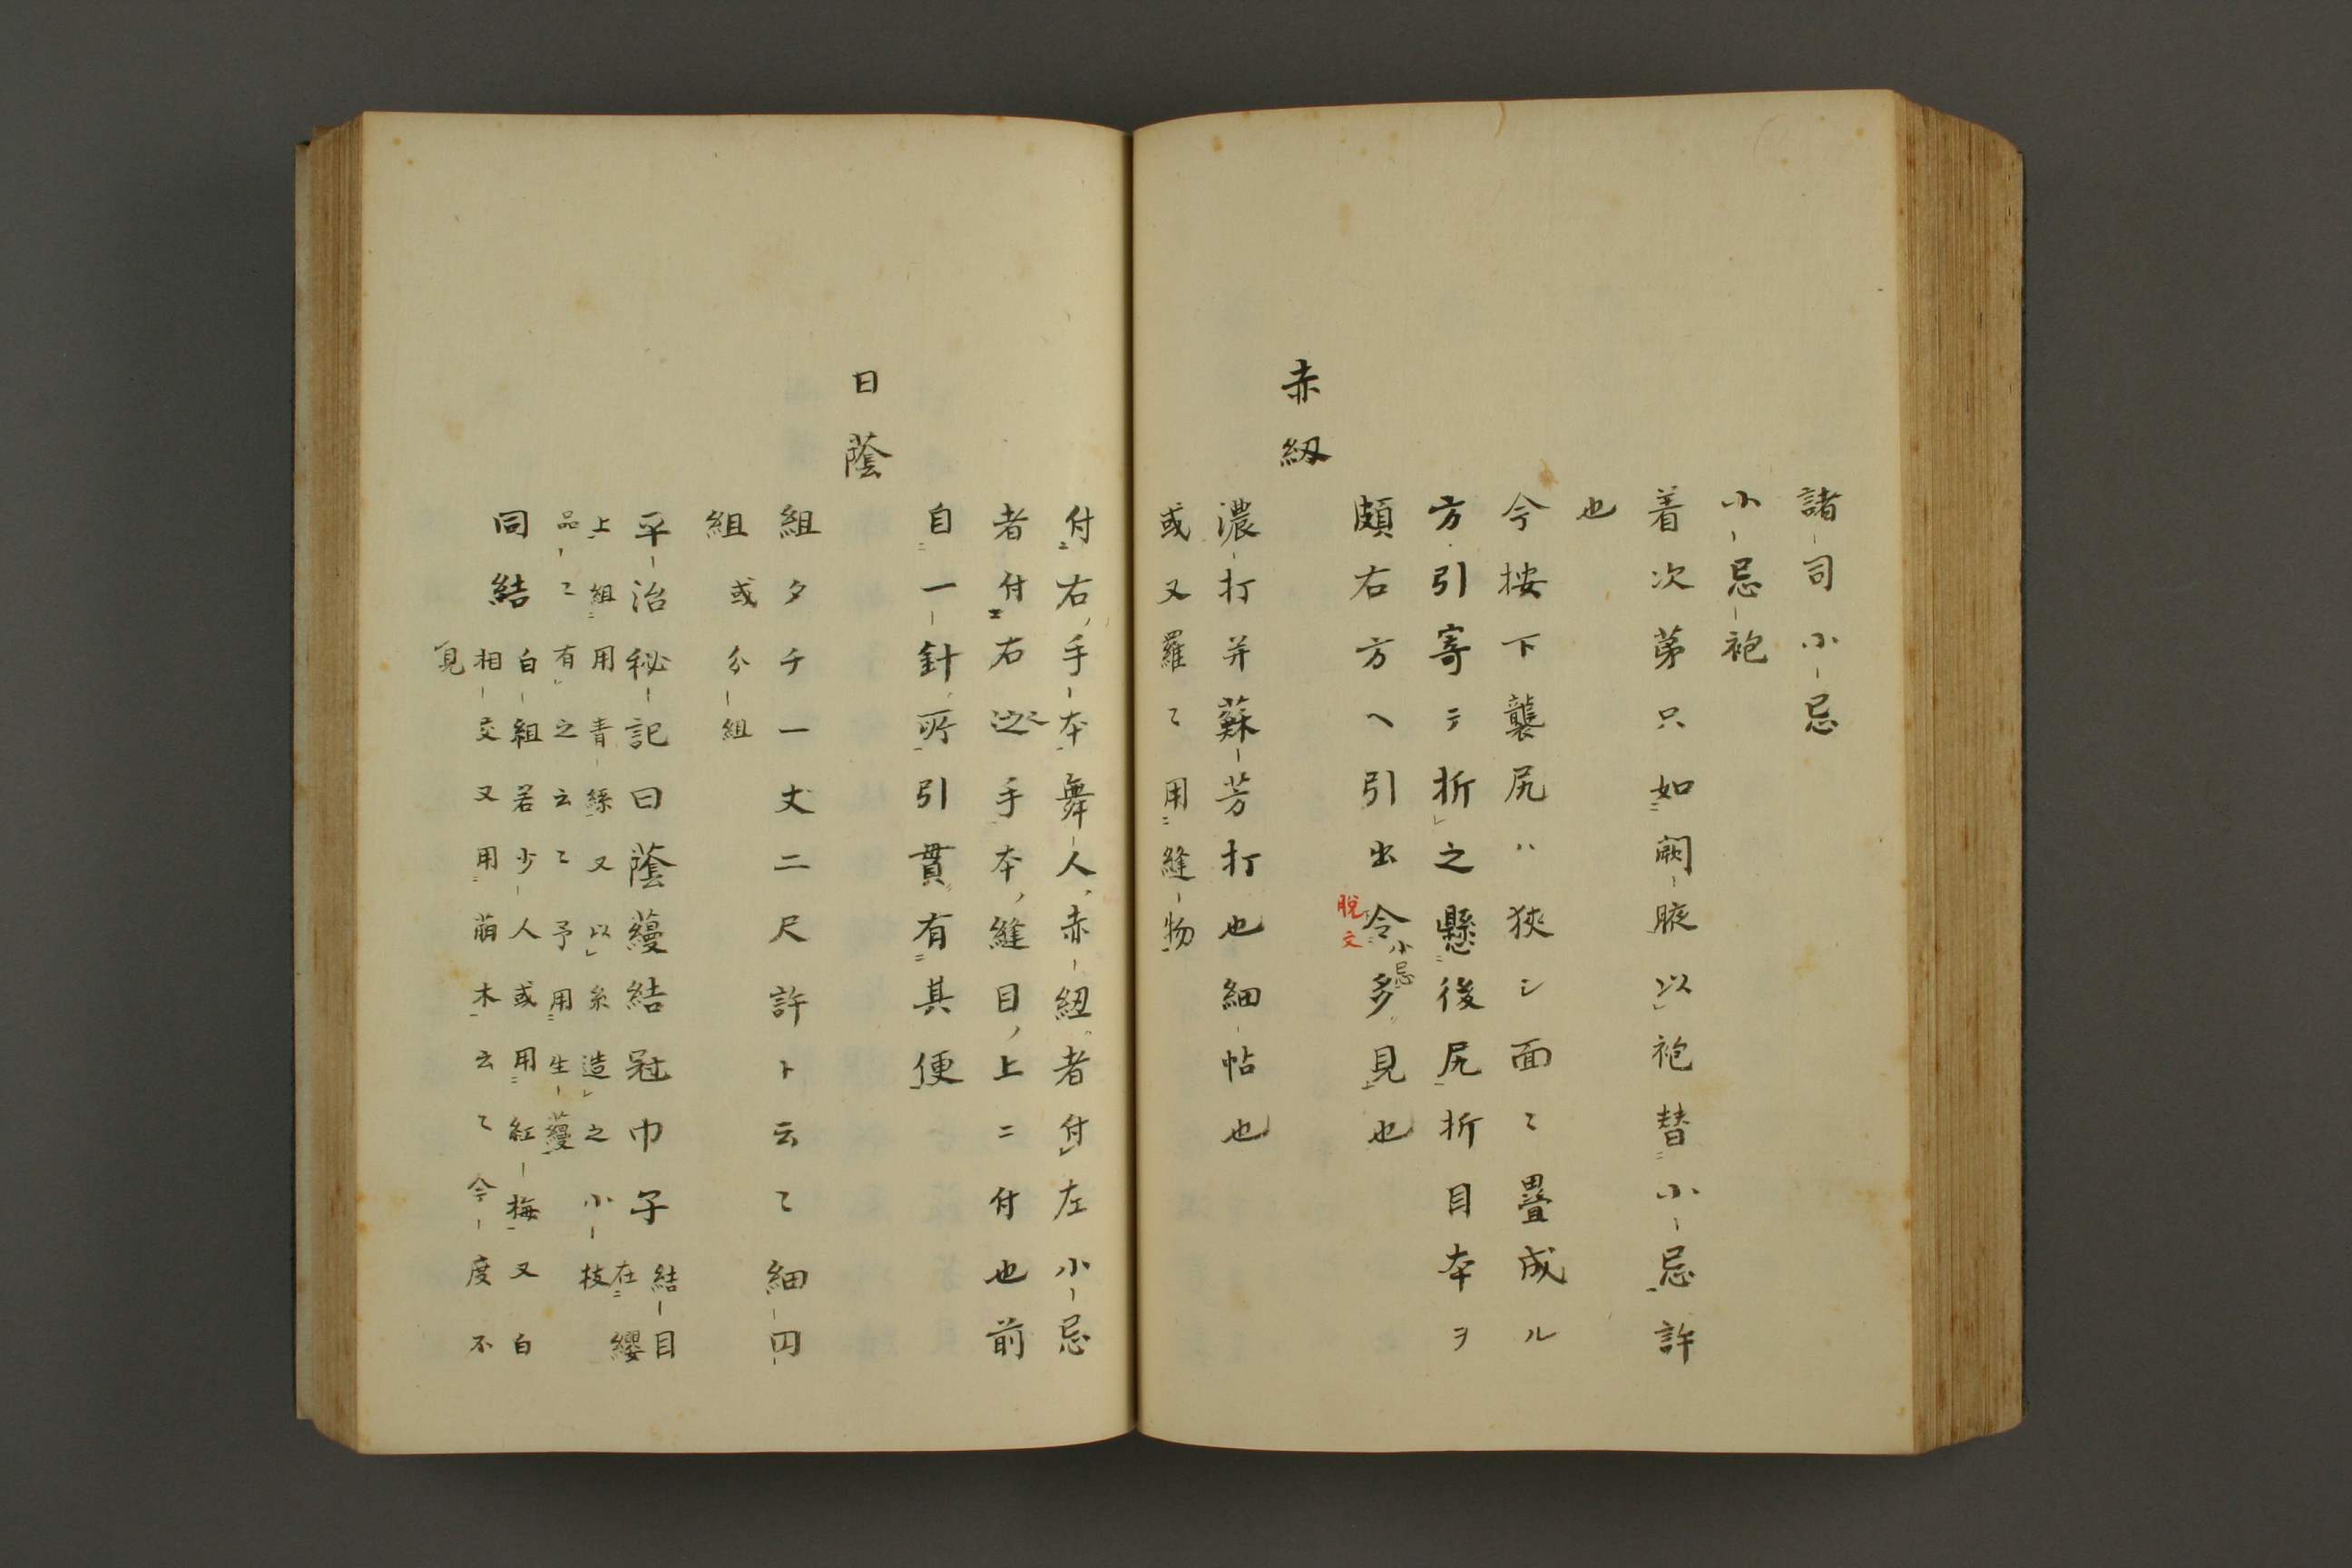 諸司小忌
小忌袍
着次第只如闕腋以袍替小忌許
也
今按下襲尻ハ狭シ面〻疊成ル
方引寄テ折之懸後尻折目本ヲ
頗右方ヘ引出令多見也
小忌
脱文
赤紐
濃打并蘇芳打也細帖也
或又羅〻用縫物
付右手本舞人赤紐者付左小忌
者付右之手本縫目上ニ付也前
自一針所引貫有其便
日蔭
組タチ一丈二尺許ト云〻細円
組或分組
平治秘記曰蔭蘰結冠巾子結目
在纓
上組用青絲又以糸造之小枝
品〻有之云〻予用生蘰
同結白組若少人或用紅梅又白
相交又用萠木云〻今度不
見